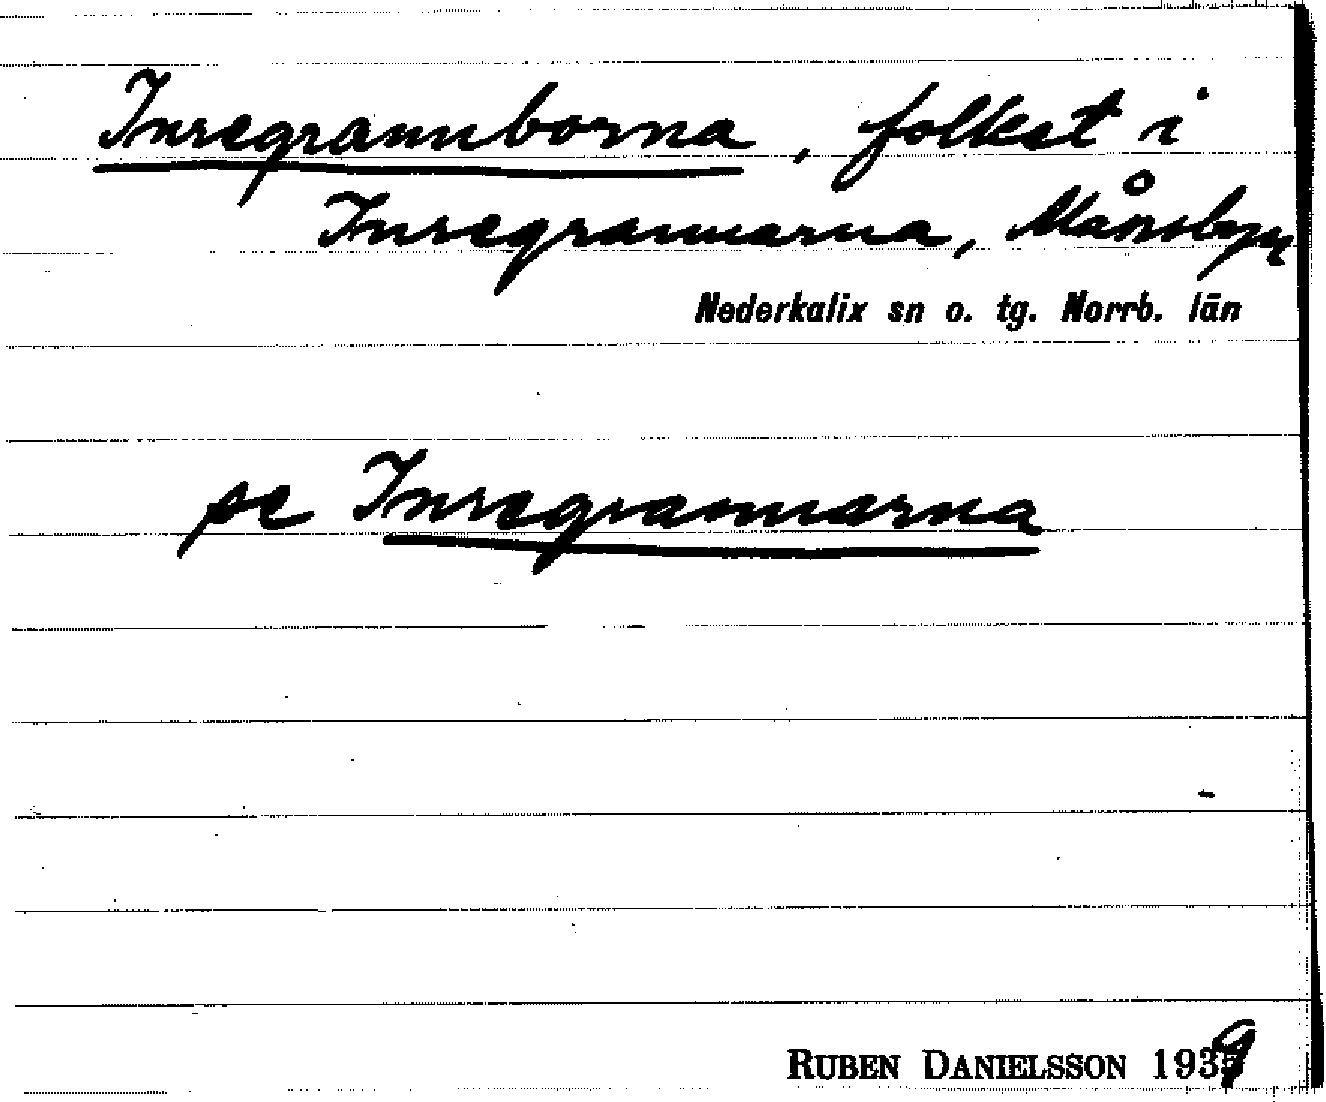 Inregrannborna, folket i
Inregrannarna, Månsbyn
Nederkalix sn o. tg. Norrb. län
se Inregrannarna
RUBEN DANIELSSON 1939